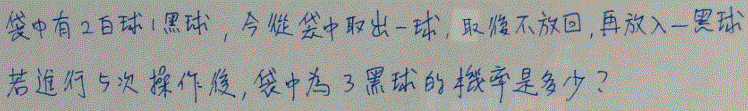 袋中有2白球1黑球,今從袋中取出一球,取後不放回,再放入一黑球
若進行5次操作後,袋中為3黑球的機率是多少?